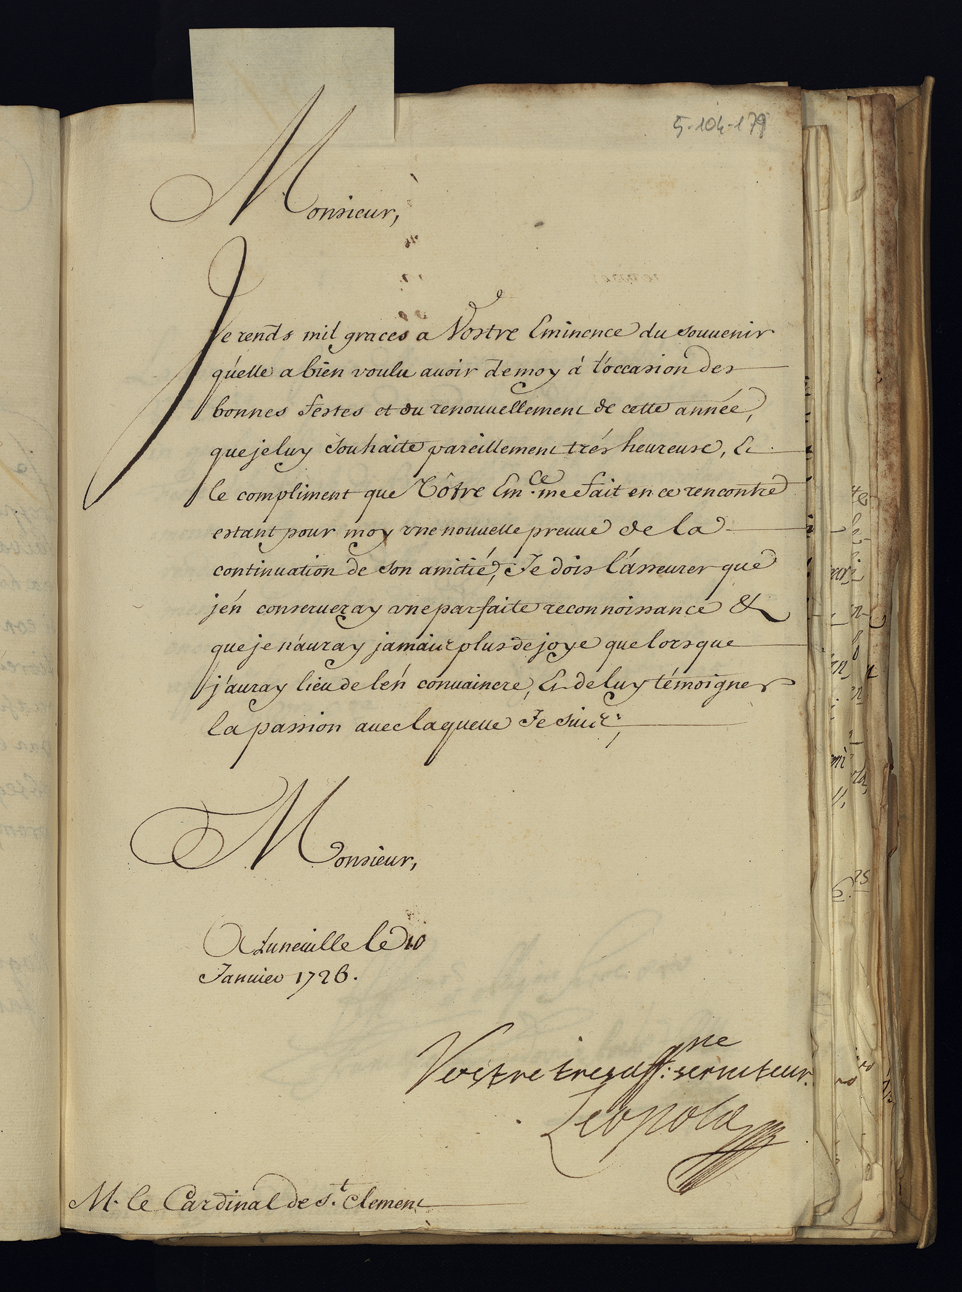 5-104-179
Monsieur,
Je rends mil graces a Vostre Eminence du souvenir
qu'elle a bien voulu auoir de moy á l'occasion des
bonnes festes et du renouuellement de cette année,
que je luy souhaite pareillement trés heureuse, Et
le compliment que Vôtre Em.ce me fait en ce rencontre
estant pour moy vne nouuelle preuue de la
continuation de son amitié, Je dois l'asseurer que
j'en conserueray vne parfaite reconnoissance &
que je n'auray jamais plus de joye que lors que
j'auray lieu de l'en conuaincre, Et de luy témoigner
la passion auec laquelle Je suis;
Monsieur,
A Luneuille le 10
Januier 1726.
Vostre tres aff.ne seruiteur.
Leopold
M. le Cardinal de S.t Clement